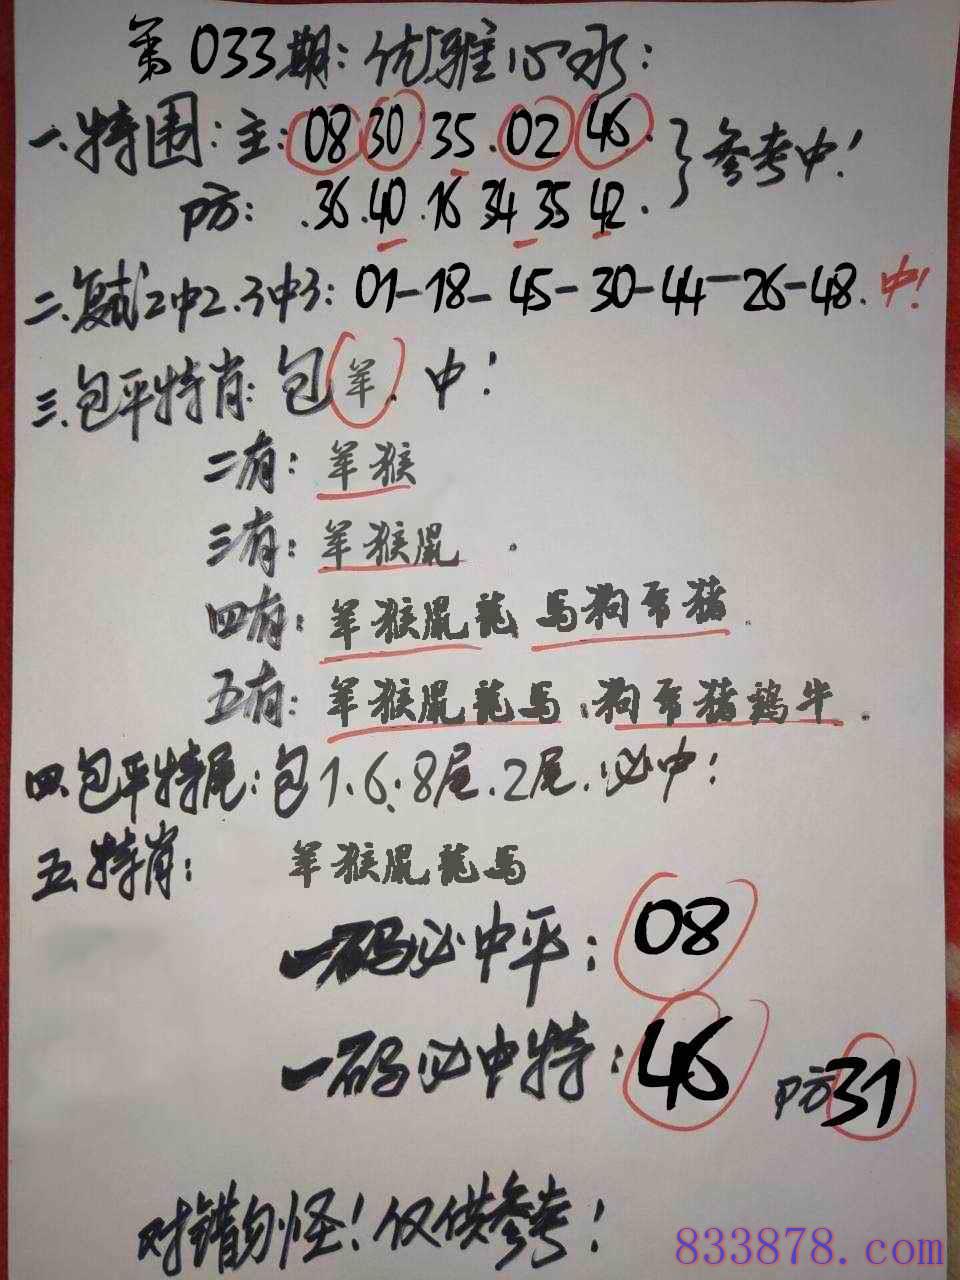 第033期：优雅心水：
一.特围：主：08 30.35.02 46.
防：.36.40.16 34 35 42.
}参考中！
二.复式2中2.3中3：01-18-45-30-44-26-48.中！
三.包平特肖：包羊.中！
二有：羊猴
三有：羊猴鼠.
四有：羊猴鼠龍 馬狗兔猪.
五有：羊猴鼠龍馬.狗兔猪鷄牛.
四.包平特尾：包1.6.8尾.2尾.必中！
五.特肖：羊猴鼠龍馬
一码必中平：08
一码必中特：46 防31
对错勿怪！仅供参考！
833878.com